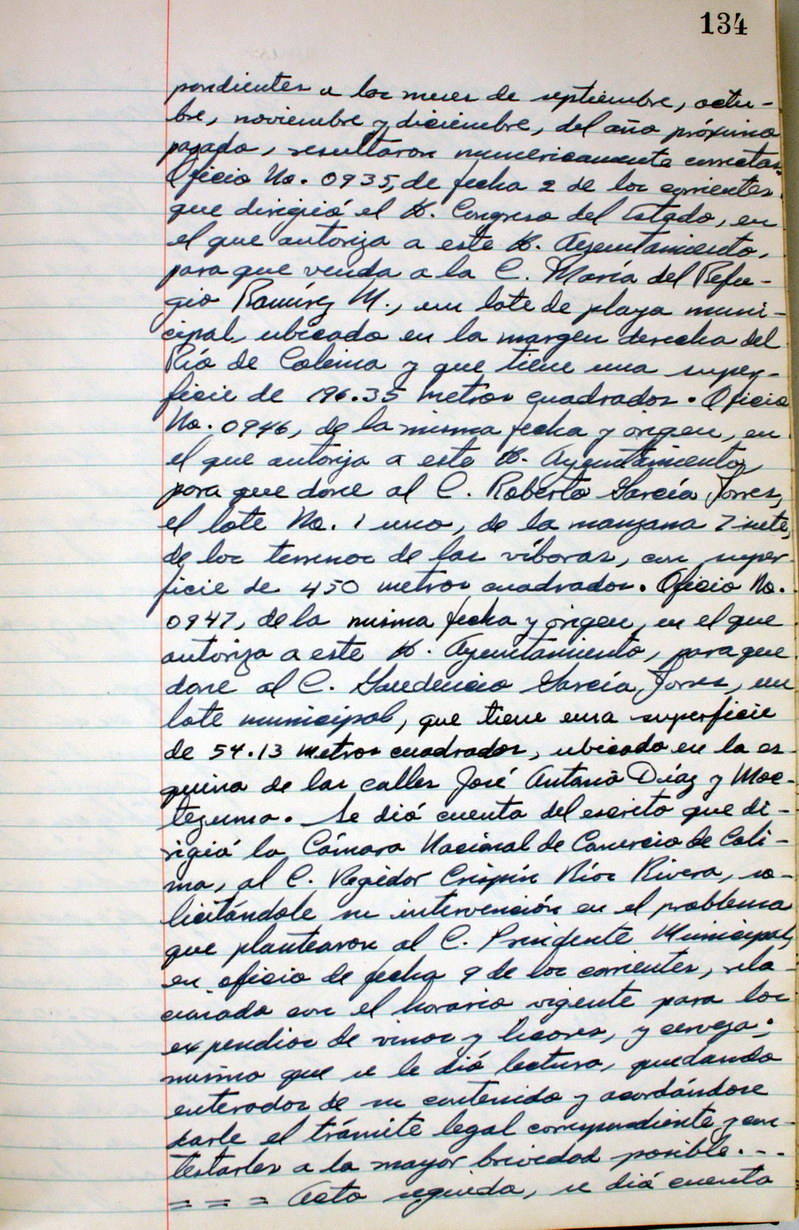 134
pondientes a los meses de septiembre, octu-
bre, noviembre y diciembre, del año próximo
pasado, resultaron numericamente correctas.
Oficio No. 0935, de fecha 2 de los corrientes
que dirigió el H. Congreso del Estado, en
el que autoriza a este H. Ayuntamiento,
para que venda a la C. María del Refu-
gio Ramírez M., un lote de playa muni-
cipal, ubicado en la margen derecha del
Río de Colima y que tiene una super-
ficie de 196.35 metros cuadrados. Oficio
No. 0946, de la misma fecha y origen, en
el que autoriza a este H. Ayuntamiento,
para que done al C. Roberto García Torres,
el lote No. 1 uno, de la manzana 7 siete,
de los terrenos de las víboras, con super-
ficie de 450 metros cuadrados. Oficio No.
0947, de la misma fecha y origen, en el que
autoriza a este H. Ayuntamiento, para que
done al C. Gaudencio García Torres, un
lote municipal, que tiene una superficie
de 54.13 metros cuadrados, ubicado en la es-
quina de las calles José Antonio Díaz y Moc-
tezuma. Se dió cuenta del escrito que di-
rigió la Cámara Nacional de Comercio de Coli-
ma, al C. Regidor Crispín Ríos Rivera, so-
licitándole su intervención en el problema
que plantearon al C. Presidente Municipal,
en oficio de fecha 9 de los corrientes, rela-
cionado con el horario vigente para los
expendios de vinos y licores, y cerveza;
mismo que se le dió lectura, quedando
enterados de su contenido y acordándose
darle el trámite legal correspondiente y con-
testarles a la mayor brevedad posible. - -
= = = Acto seguido, se dió cuenta